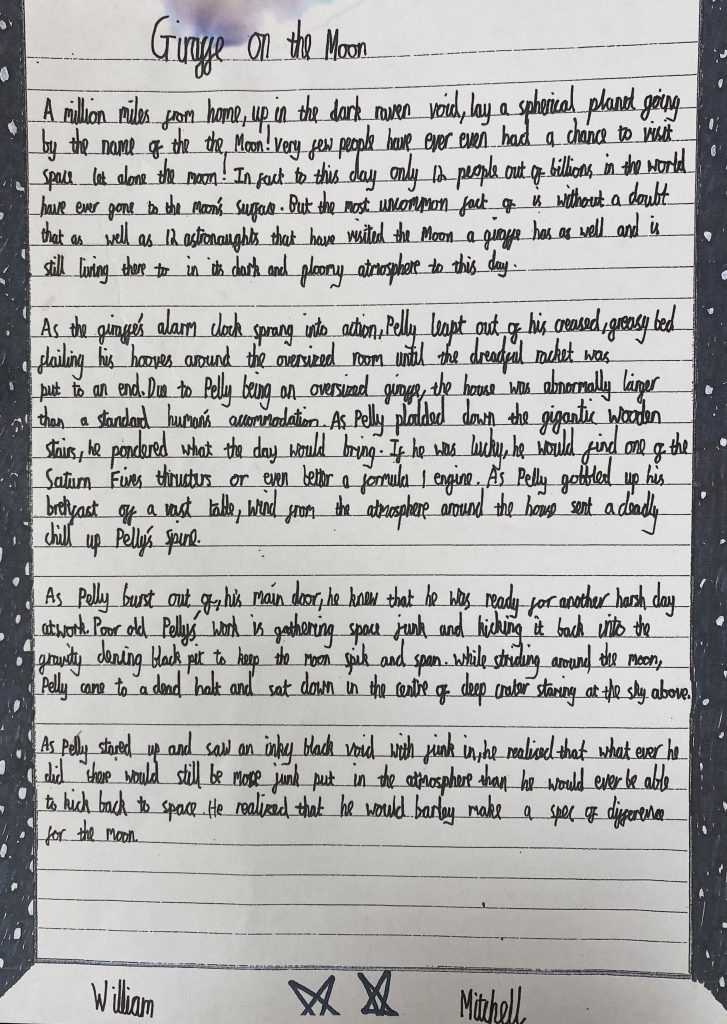 Giraffe on the Moon
A million miles from home, up in the dark raven void, lay a spherical planet going
by the name of the the, Moon! Very few people have ever even had a chance to visit
space let alone the moon! In fact to this day only 12 people out of billions in the world
have ever gone to the moon's surface. But the most uncommon fact of is without a doubt
that as well as 12 astronaughts that have visited the Moon a giraffe has as well and is
still living there to in its dark and gloomy atmosphere to this day.
As the giraffe's alarm clock sprang into action, Pelly leapt out of his creased, greasy bed
flailing his hooves around the oversized room until the dreadful racket was
put to an end. Due to Pelly being an oversized giraffe, the house was abnormally larger
than a standard human's accommodation. As Pelly plodded down the gigantic wooden
stairs, he pondered what the day would bring. If he was lucky, he would find one of the
Saturn Fives thrusturs or even better a formula 1 engine. As Pelly gobbled up his
brekfast off a vast table, wind from the atmosphere around the house sent a deadly
chill up Pelly's spine.
As Pelly burst out of, his main door, he knew that he was ready for another harsh day
at work. Poor old Pelly's work is gathering space junk and kicking it back into the
gravity dening black pit to keep the moon spik and span. While striding around the moon,
Pelly came to a dead halt and sat down in the centre of deep crater staring at the sky above.
As Pelly stared up and saw an inky black void with junk in, he realised that what ever he
did there would still be more junk put in the atmosphere than he would ever be able
to kick back to space. He realized that he would barley make a spec of difference
for the moon.
William Mitchell